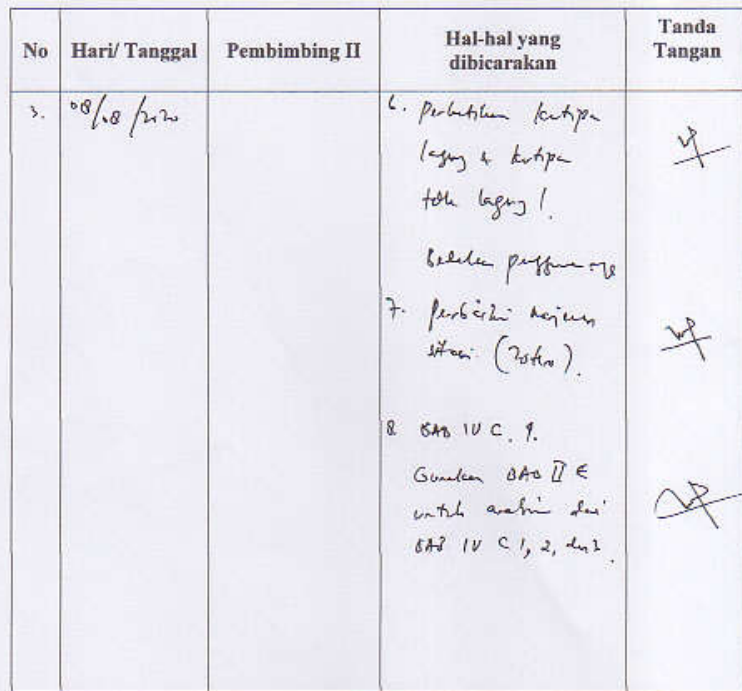 No Hari/ Tanggal Pembimbing II Hal-hal yang dibicarakan Tanda Tangan
3. 08/08/2020
6. Perhatikan kutipan
langsung & kutipan
tdk langsung!
Bedakan penggunaannya
7. Perbaiki manajemen
sitasi (Zotero).
8 BAB IV C. 1.
Gunakan BAB II E
untuk analisis dari
BAB IV C 1, 2, dan 3.